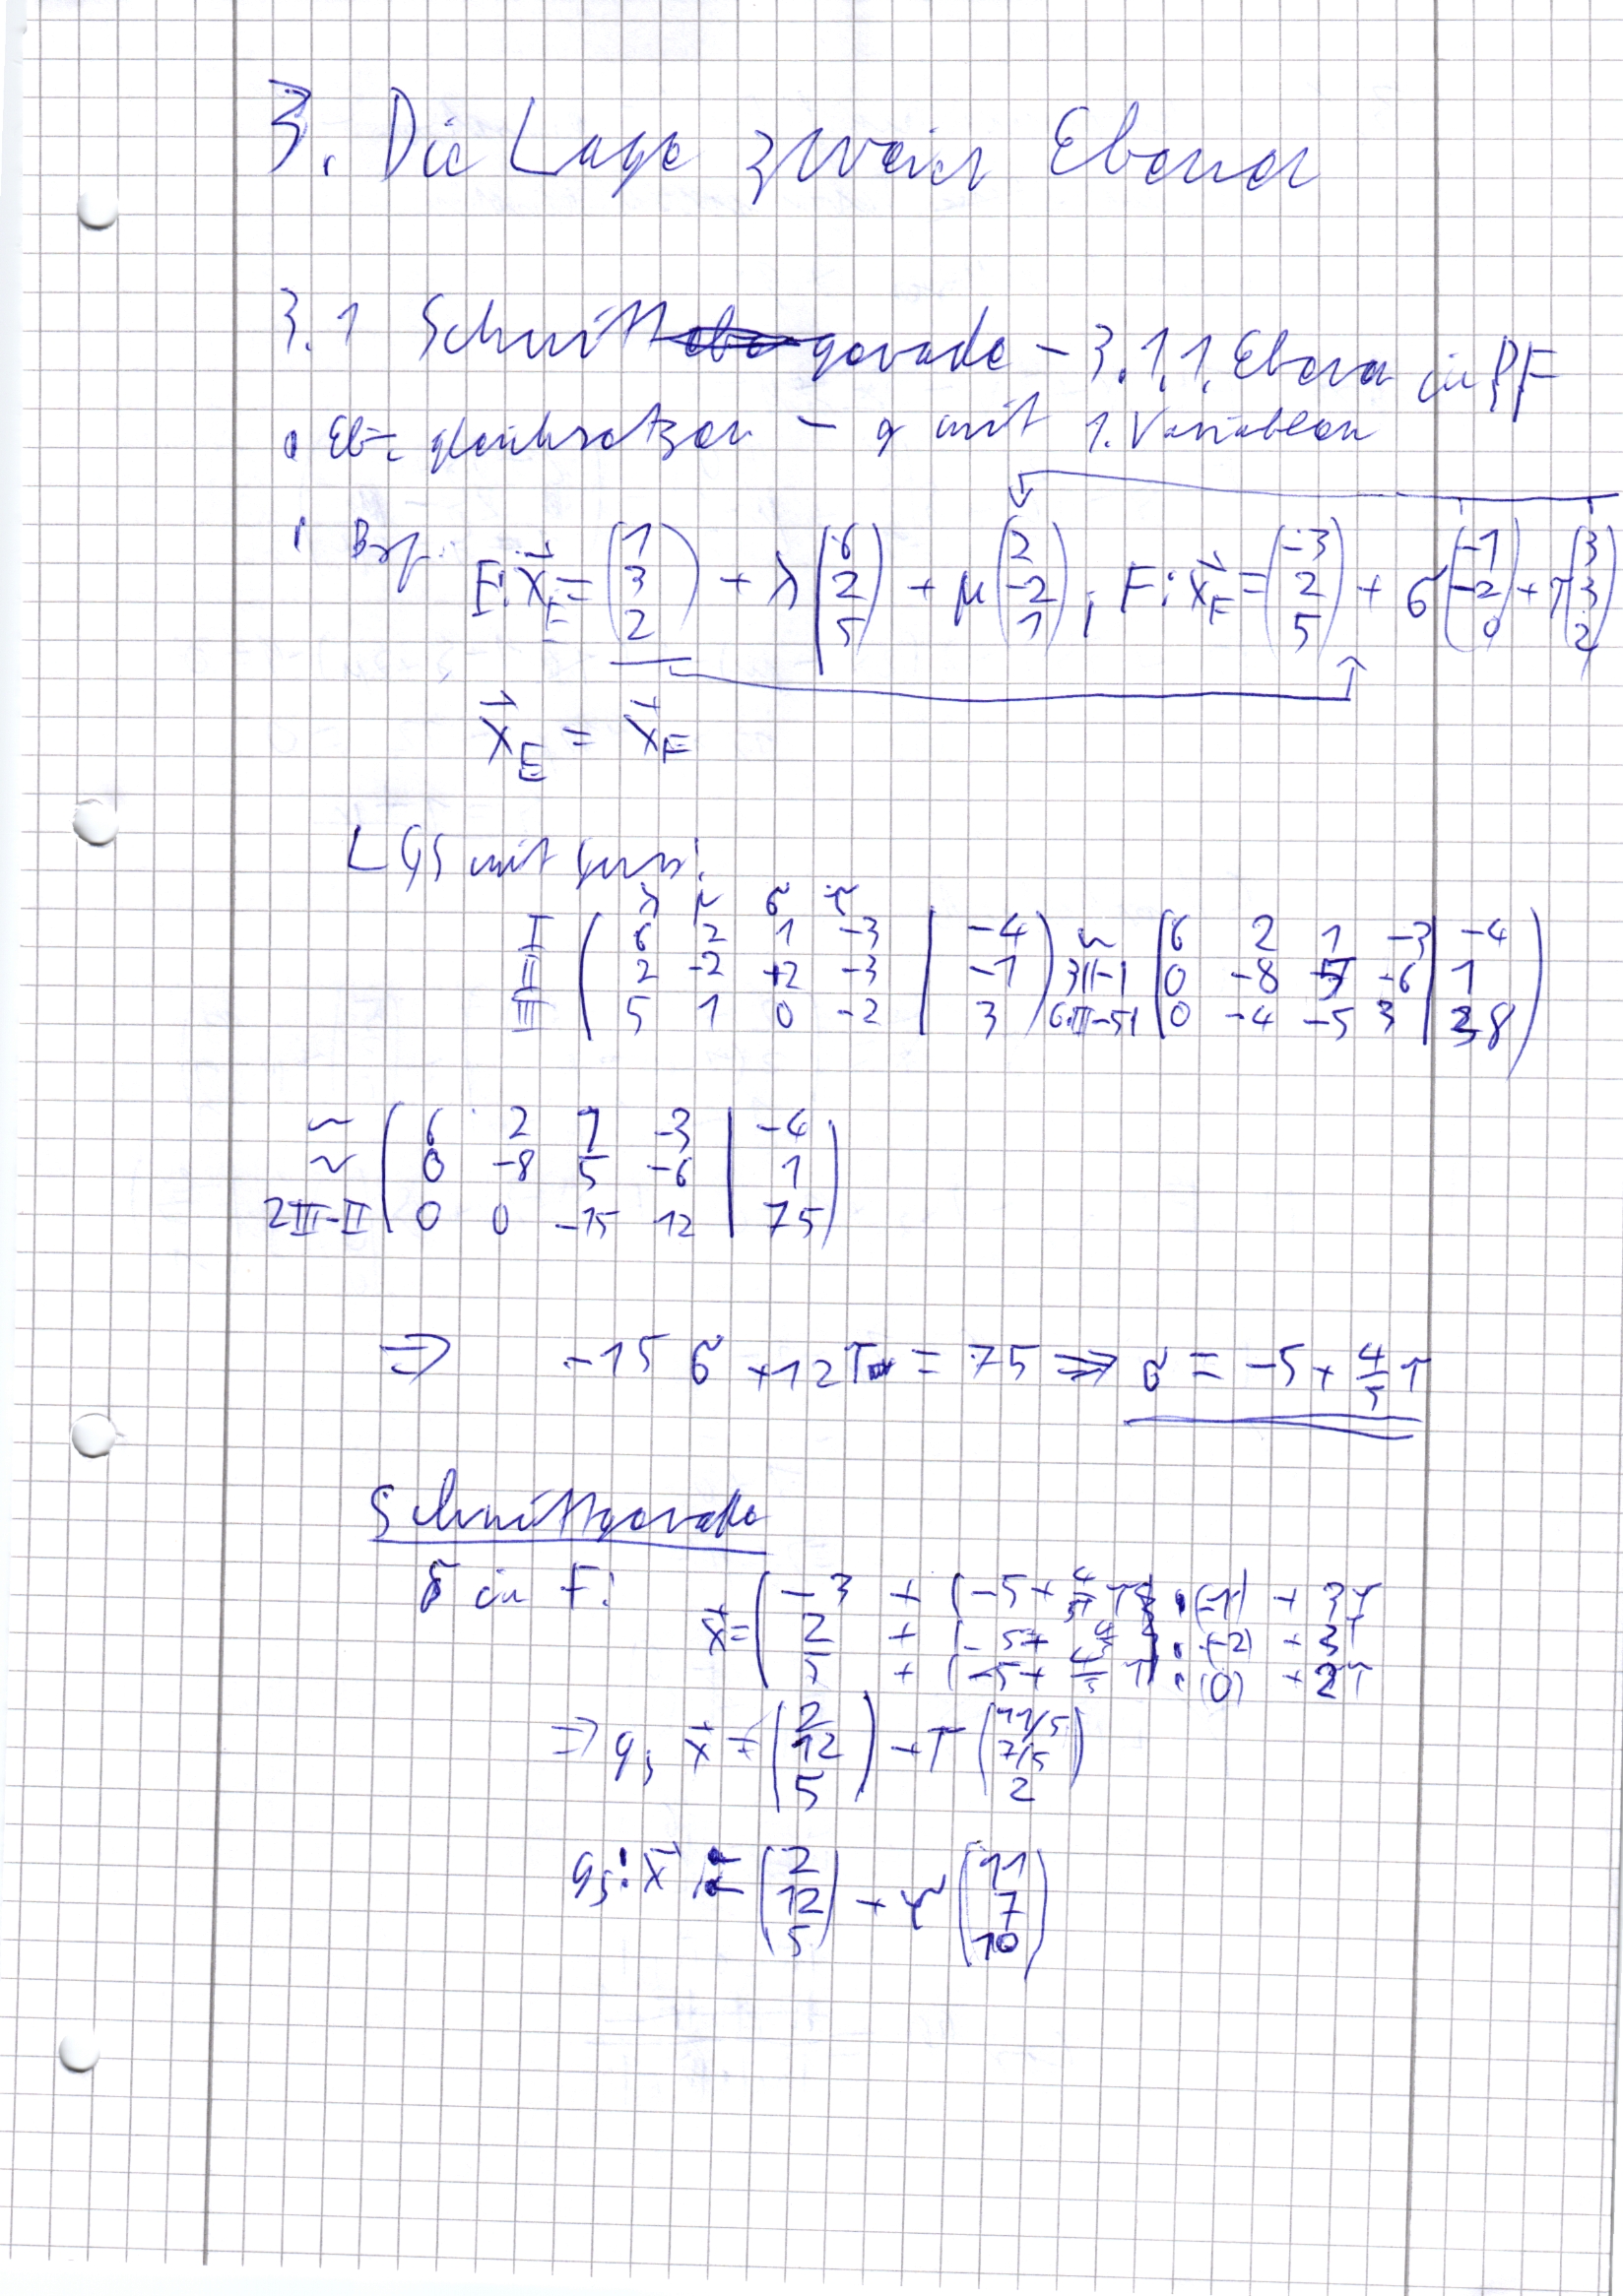 3. Die Lage zweier Ebenen
3.1 Schnittgerade – 3.1.1. Ebenen in PF
gleichsetzen – g mit 1. Variablen
Bsp.: E: x⃗_E = (1 3 2) + λ (6 2 5) + μ (2 -2 1) ; F: x⃗_F = (-3 2 5) + σ (-1 -2 0) + τ (3 3 2)
x⃗_E = x⃗_F
LGS mit
λ μ σ τ
I ( 6 2 1 -3 | -4 ) ~ ( 6 2 1 -3 | -4 )
II ( 2 -2 +2 -3 | -1 ) 3II-I ( 0 -8 5 -6 | 1 )
III ( 5 1 0 -2 | 3 ) 6·III-5I ( 0 -4 -5 3 | 38 )
~ ( 6 2 1 -3 | -4 )
~ ( 0 -8 5 -6 | 1 )
2III-II ( 0 0 -15 12 | 75 )
⇒ -15 σ +12τ = 75 ⇒ σ = -5 + 4/5 τ
Schnittgerade
σ in F: x⃗ = ( -3 + (-5 + 4/5 τ) · (-1) + 3τ
2 + (-5 + 4/5 ) · (-2) + 3τ
5 + (-5 + 4/5 τ) · (0) + 2τ
⇒ g_s x⃗ = (2 12 5) + τ (11/5 7/5 2)
g_s: x⃗ = (2 12 5) + τ (11 7 10)